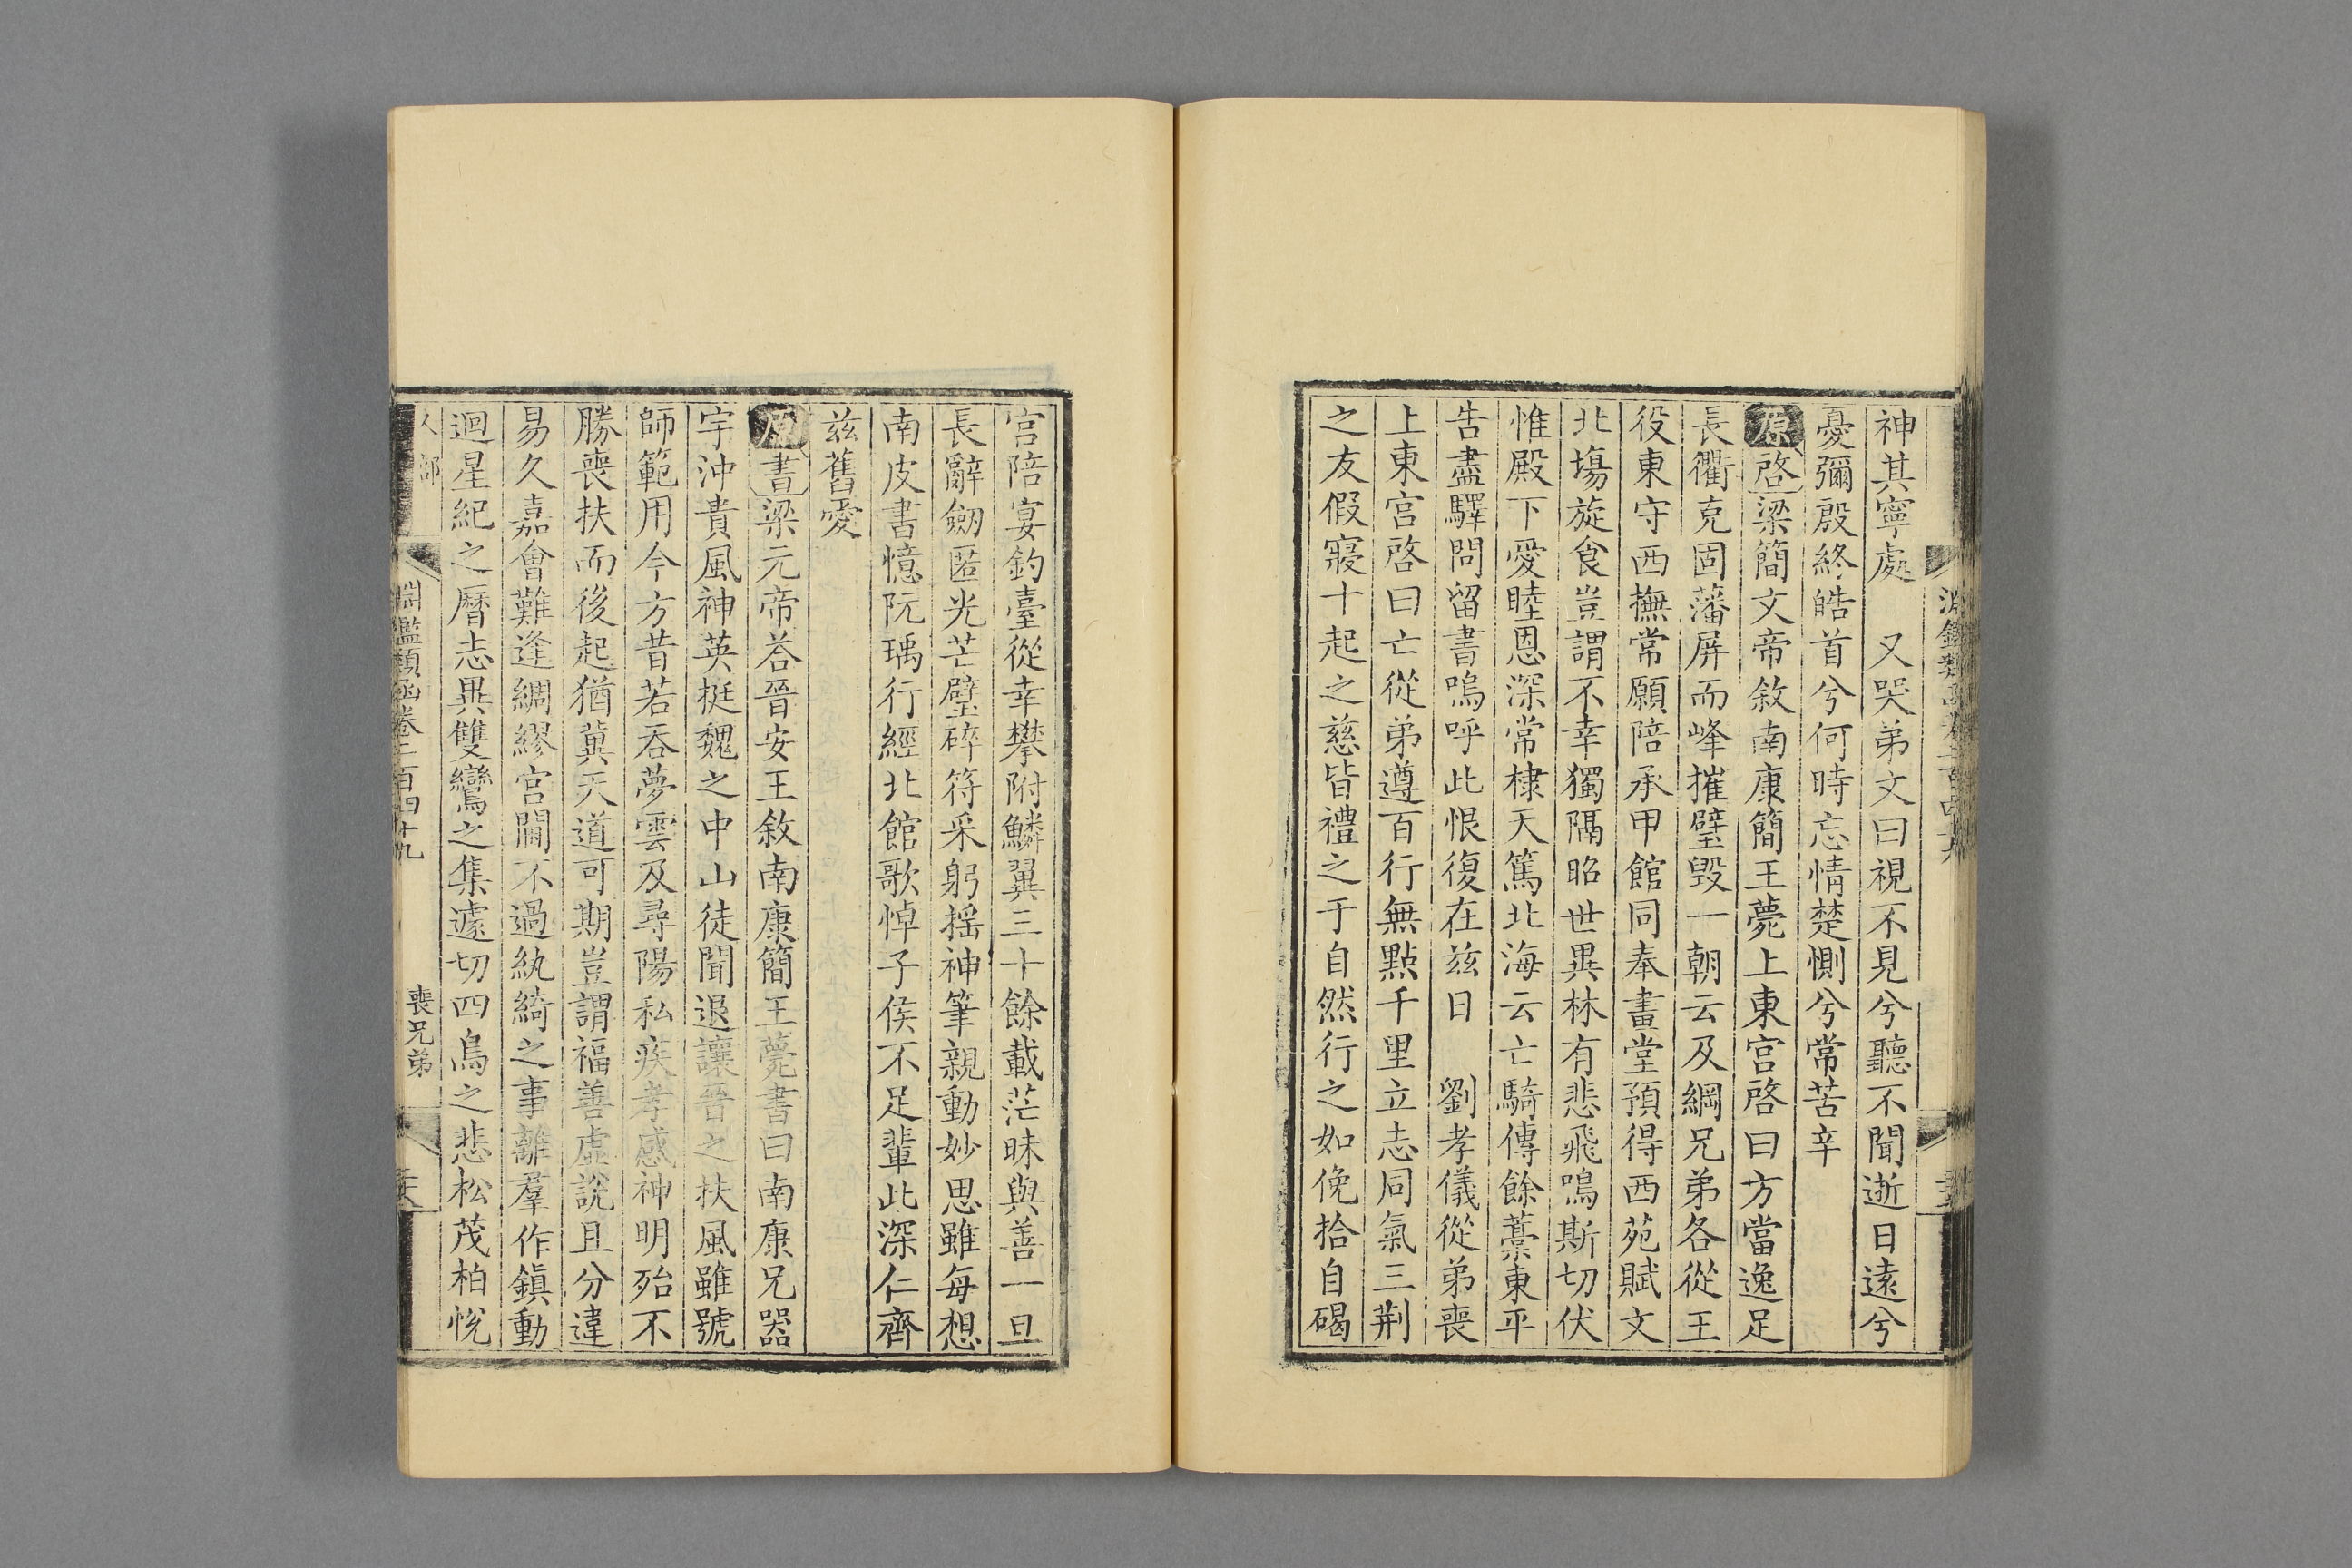 神其寧處　又哭弟文曰視不見兮聽不聞逝日遠兮
憂彌殷終皓首兮何時忘情楚惻兮常苦辛
原啓梁簡文帝敘南康簡王薨上東宮啓曰方當逸足
長衢克固藩屏而峰摧璧毀一朝云及綱兄弟各從王
役東守西撫常願陪承甲館同奉畫堂預得西苑賦文
北場旋食豈謂不幸獨隔昭世異林有悲飛鳴斯切伏
惟殿下愛睦恩深常棣天篤北海云亡騎傳餘藁東平
告盡驛問留書嗚呼此恨復在兹日　劉孝儀從弟喪
上東宮啓曰亡從弟遵百行無點千里立志同氣三荆
之友假寢十起之慈皆禮之于自然行之如俛拾自碣
宮陪宴釣臺從幸攀附鱗翼三十餘載茫昧與善一旦
長辭劒匿光芒璧碎符采躬搖神筆親動妙思雖每想
南皮書憶阮瑀行經北館歌悼子侯不足輩此深仁齊
兹舊愛
原書梁元帝荅晉安王敘南康簡王薨書曰南康兄器
宇沖貴風神英挺魏之中山徒聞退讓晉之扶風雖號
師範用今方昔若吞夢雲及尋陽私疾孝感神明殆不
勝喪扶而後起猶冀天道可期豈謂福善虛説且分違
易久嘉會難逢綢繆宮闈不過紈綺之事離羣作鎮動
迴星紀之曆志異雙鸞之集遽切四鳥之悲松茂柏悦
人部　淵鑑類函卷二百四十九　喪兄弟